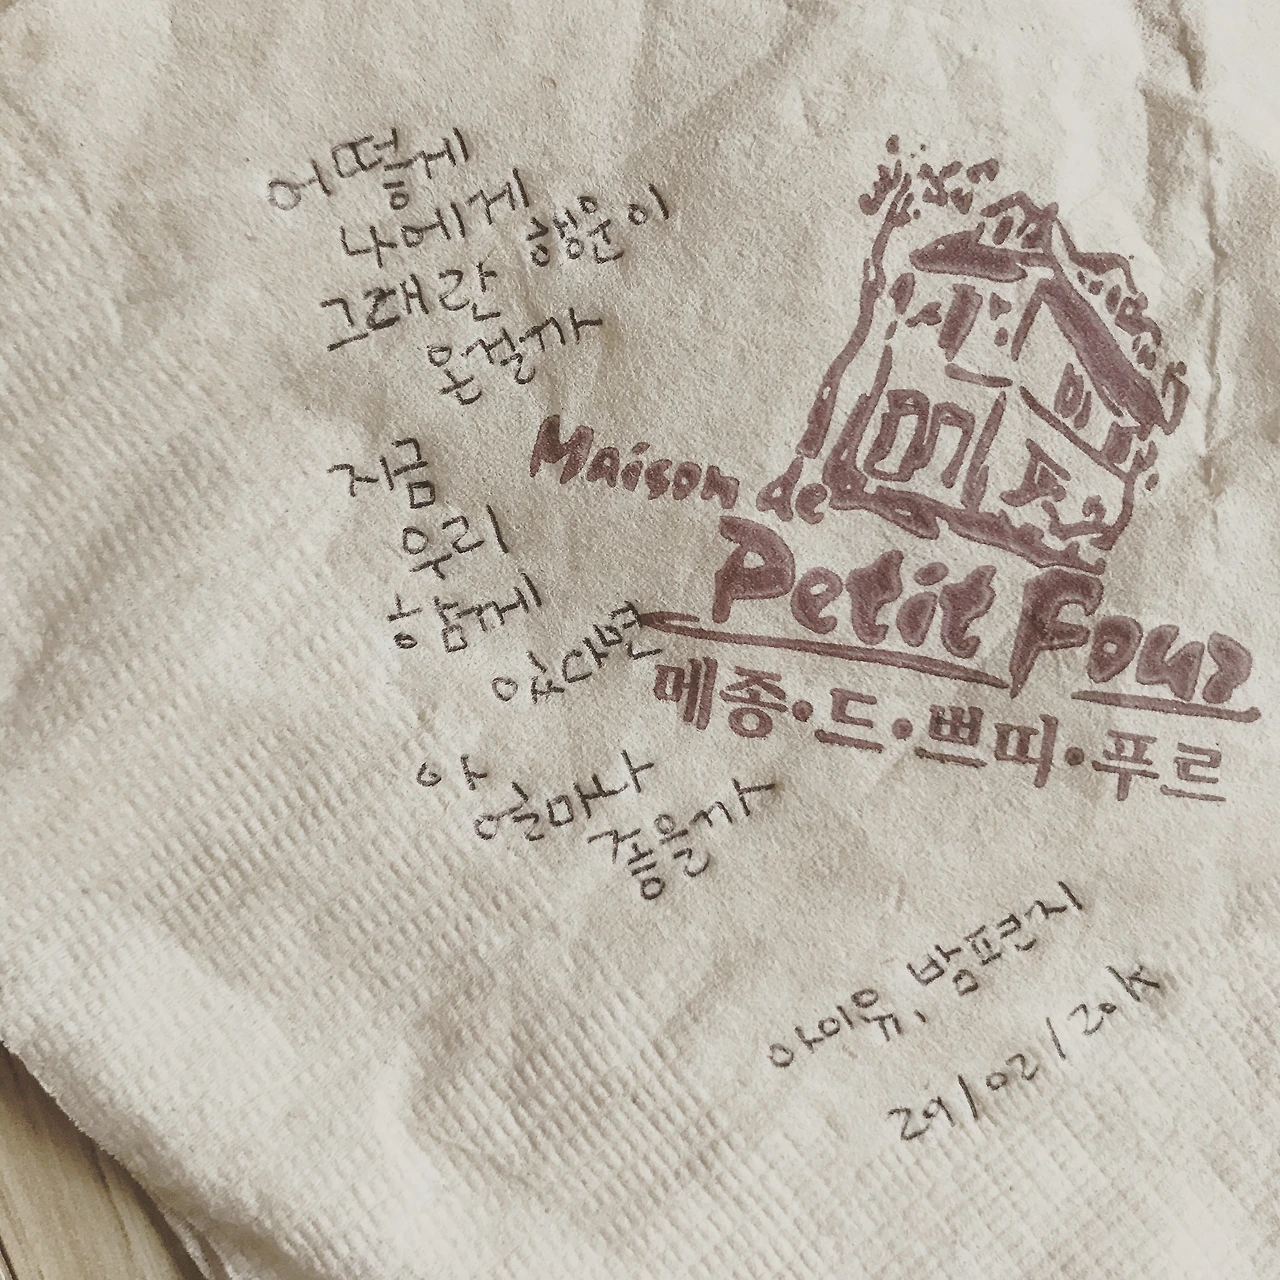 어떻게
나에게
그대란 행운이
온걸까
지금
우리
함께
있다면
아
얼마나
좋을까
Maison de
Petit Four
메종·드·쁘띠·푸르
아이유, 밤편지